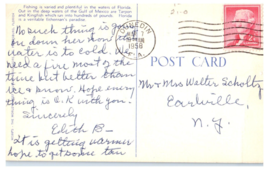 Fishing is varied and plentiful in the waters of Florida.
Out in the deep waters of the Gulf of Mexico are Tarpon
and Kingfish which run into hundreds of pounds. Florida,
a veritable fisherman's paradise.
No such thing is going
on down here now
water is to cold. We
need a fire most of the
time but better than
ice & snow. Hope every
thing is O.K with you.
Sincerely
Edith B-
It is getting warmer
hope to get some tan
DUNEDIN
1956
POST CARD
Mr & Mrs Welter Scholtz
Earlville,
N.Y.